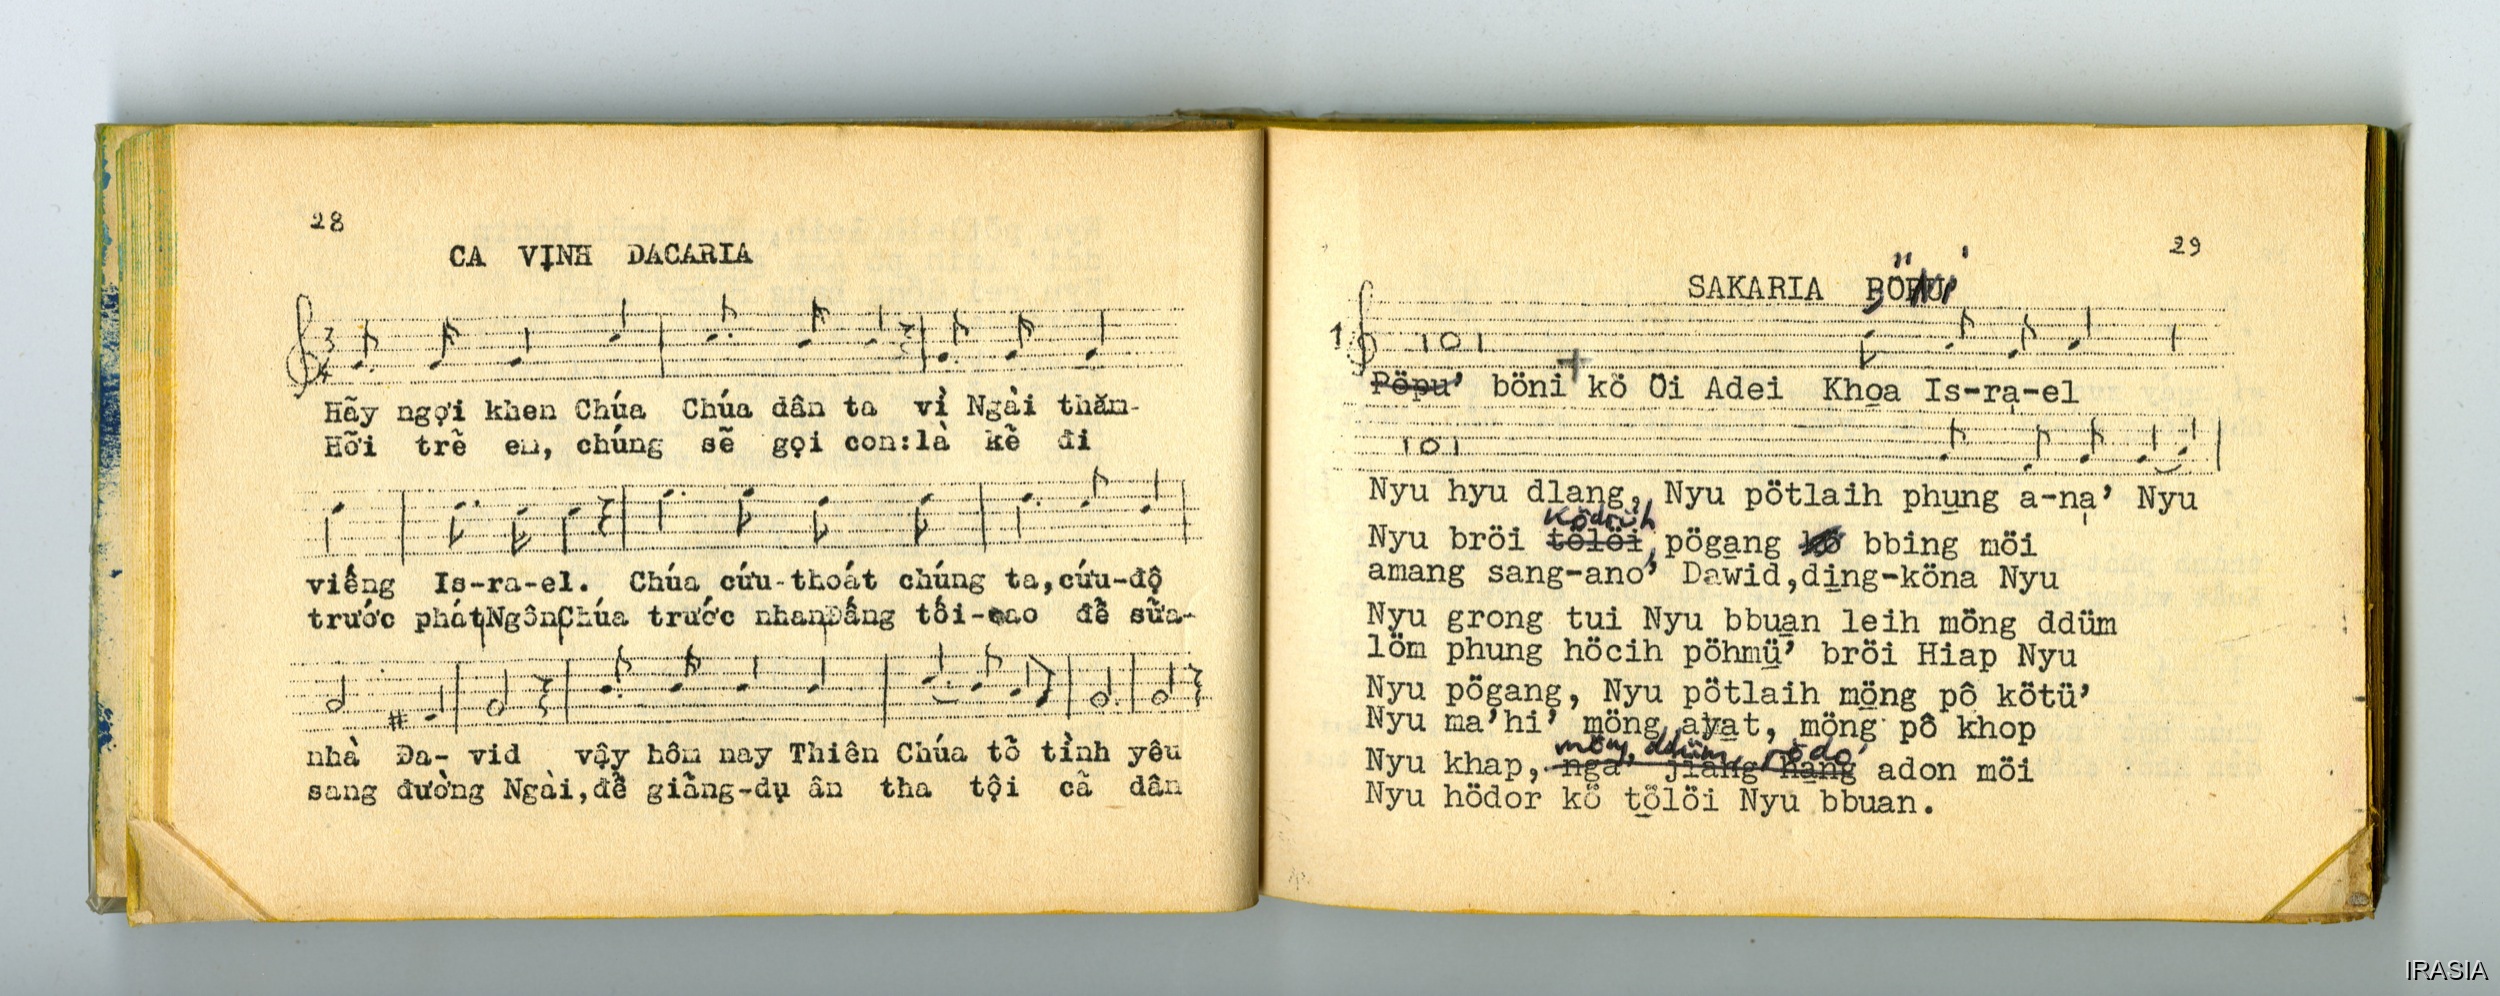 28
CA VỊNH DACARIA
3
4
Hãy ngợi khen Chúa Chúa dân ta vì Ngài thăm-
Hỡi trẽ em, chúng sẽ gọi con:là kẽ đi
viếng Is-ra-el. Chúa cứu-thoát chúng ta,cứu-độ
trước phátNgônChúa trước nhanĐấng tối-cao để sữa-
nhà Đa- vid vậy hôm nay Thiên Chúa tõ tình yêu
sang đường Ngài,để giãng-dụ ân tha tội cã dân
29
SAKARIA
1
Pöpu' böni kö Öi Adei Kho̱a Is-ra̱-el
Nyu hyu dlang, Nyu pötlaih phu̱ng a-na̩' Nyu
ködrüh
Nyu bröi tölöi, pöga̱ng bbing möi
amang sang-ano' Dawid,di̱ng-köna Nyu
Nyu grong tui Nyu bbua̱n leih möng ddüm
löm phung höcih pöhmṳ̈' bröi Hiap Nyu
Nyu pögang, Nyu pötlaih mö̱ng pô kötü'
Nyu ma'hi' mö̱ng aya̱t, möng pô khop
möng ddüm rödo'
Nyu khap, nga' jiang ha̱ng adon möi
Nyu hödor kö tö̱löi Nyu bbuan.
IRASIA